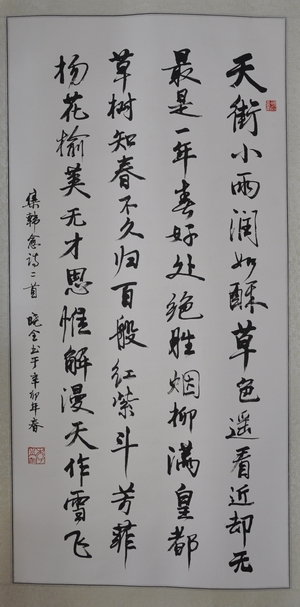 天街小雨润如酥草色遥看近却无
最是一年春好处绝胜烟柳满皇都
草树知春不久归百般红紫斗芳菲
杨花榆荚无才思惟解漫天作雪飞
集韩愈诗二首 晓全书于辛卯年春